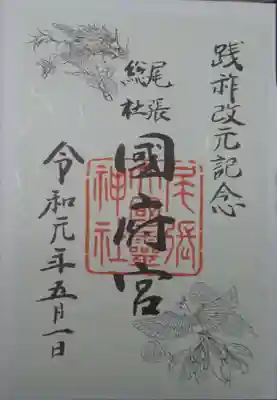 践祚改元記念
尾張
総社
國府宮
尾張
大國霊
神社
令和元年五月一日